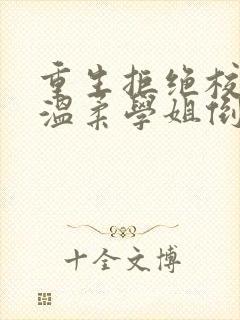 重生拒绝校
温柔學姐倒
十全文博